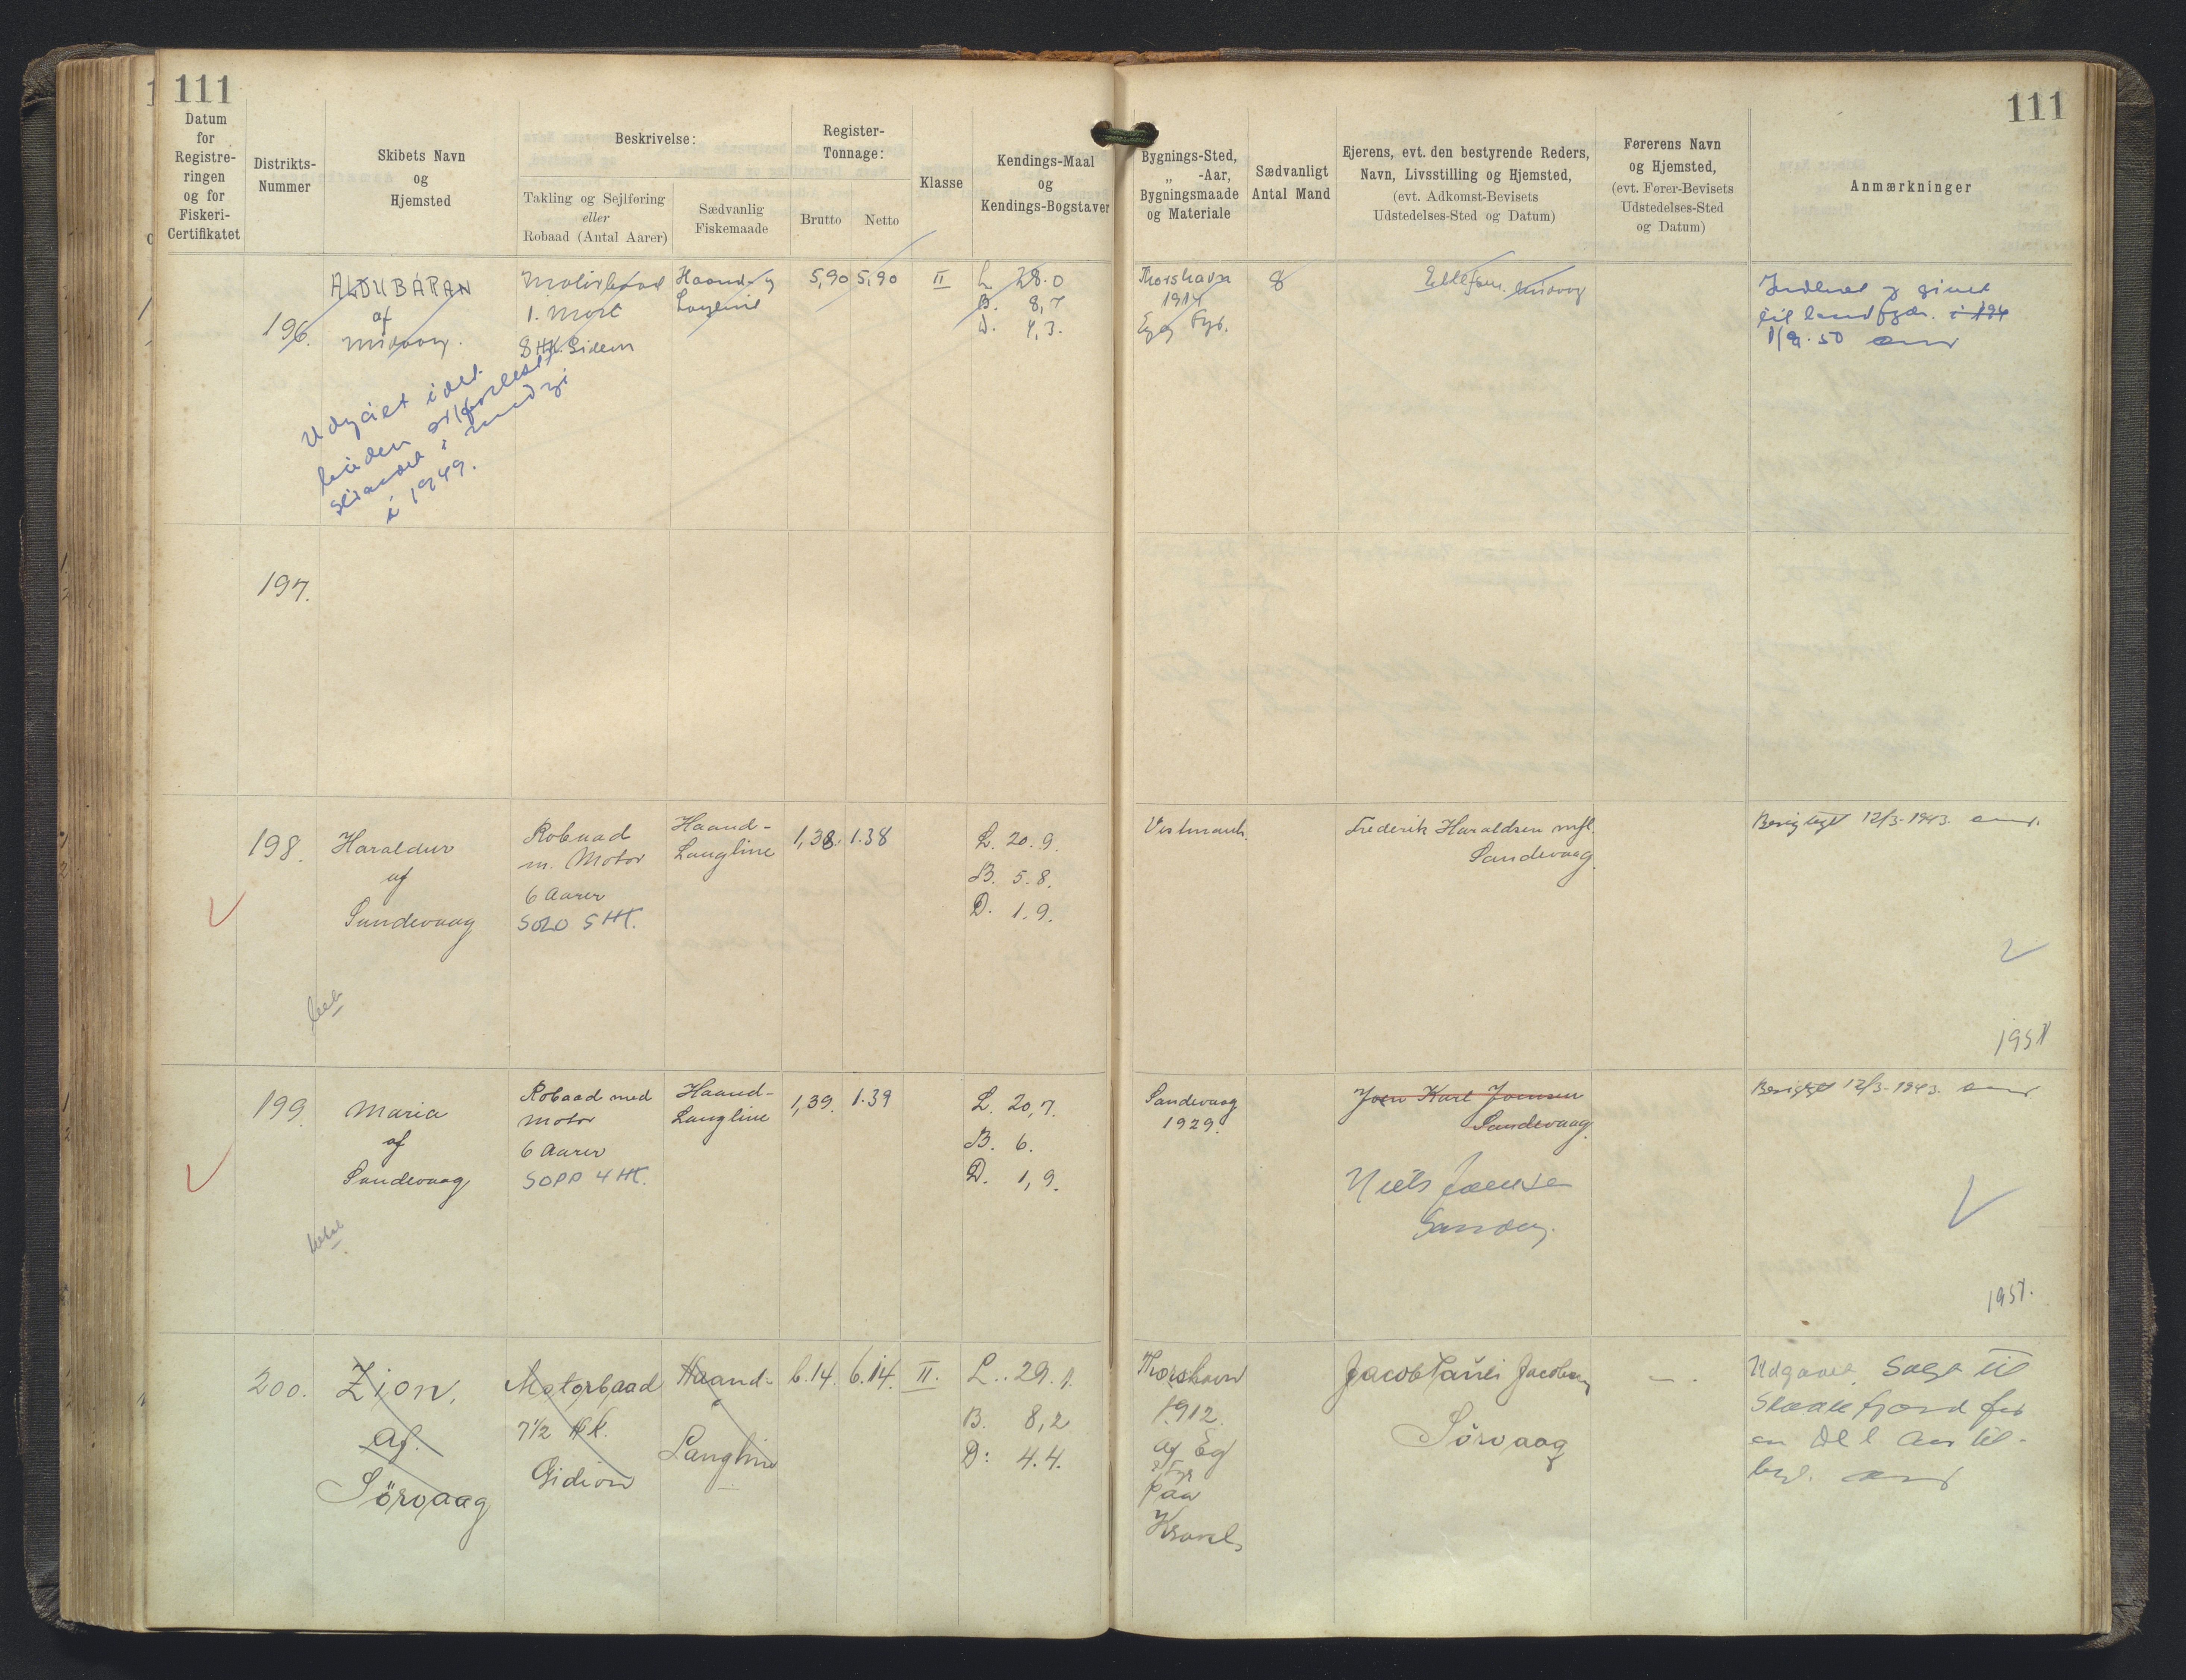 111
111
Datum
for
Registre-
ringen
og for
Fiskeri-
Certifikatet
Distrikts-
Nummer
Skibets Navn
og
Hjemsted
Beskrivelse:
Takling og Sejlføring
eller
Robaad (Antal Aarer)
Sædvanlig
Fiskemaade
Register-
Tonnage:
Brutto
Netto
Klasse
Kendings-Maal
og
Kendings-Bogstaver
Bygnings-Sted,
„ -Aar,
Bygningsmaade
og Materiale
Sædvanligt
Antal Mand
Ejerens, evt. den bestyrende Reders,
Navn, Livsstilling og Hjemsted,
(evt. Adkomst-Bevisets
Udstedelses-Sted og Datum)
Førerens Navn
og Hjemsted,
(evt. Fører-Bevisets
Udstedelses-Sted
og Datum)
Anmærkninger
196.
ALDUBARAN
af
Midvaag.
Motorbaad
1. Mast
8 HK. Gideon
Haand- og
Langline
5,90
5,90
II
L. 28.0
B. 8,7
D. 4,3.
Thorshavn
1914
Eg og Fyr.
8
Midvaag
1/9.50
Udgået idet
båden
i 1949.
197.
198.
Haraldur
af
Sandevaag
Robaad
m. Motor
6 Aarer
SOLO 5 HK.
Haand-
Langline
1,38.
1.38
L. 20.9.
B. 5.8.
D. 1.9.
Vestmanh.
Frederik Haraldsen mfl.
Sandevaag.
Berigtiget 12/3-1943.
1951
199.
Maria
af
Sandevaag
Robaad med
Motor
6 Aarer
SOPP 4 HK.
Haand-
Langline
1,39.
1.39
L. 20,7.
B. 6.
D. 1,9.
Sandevaag
1929.
Joen Karl Joensen
Sandevaag.
Niels Joensen
Berigtiget 12/3-1943.
1951.
200.
Zion,
af.
Sörvaag
Motorbaad
7 1/2 Hk.
Gidion
Haand-
Langline
6.14.
6.14.
II.
L.. 29.1.
B. 8,2
D: 4.4.
Thorshavn
1912.
af Eg
& Fyr
paa
Kravel
Jacob Pauli Jacobsen
Sörvaag
— .
Udgaaet. Solgt til
Skaalefjord for